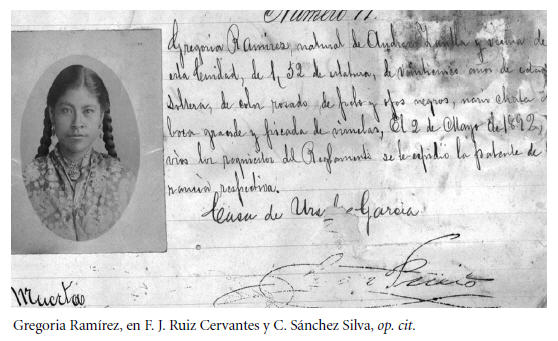 Número 11.
Gregoria Ramírez, natural de y vecina de
esta Ciudad, de 1,52 de estatura, de veintiseis anos de edad
soltera, de color rosado de pelo y ojos negros, nariz chata
boca grande y picada de viruelas, El 2 de Mayo de 1892,
vios los requisitos del Reglamento se le espidio la patente de
respectiva.
Casa de García
Muerta
Gregoria Ramírez, en F. J. Ruiz Cervantes y C. Sánchez Silva, op. cit.